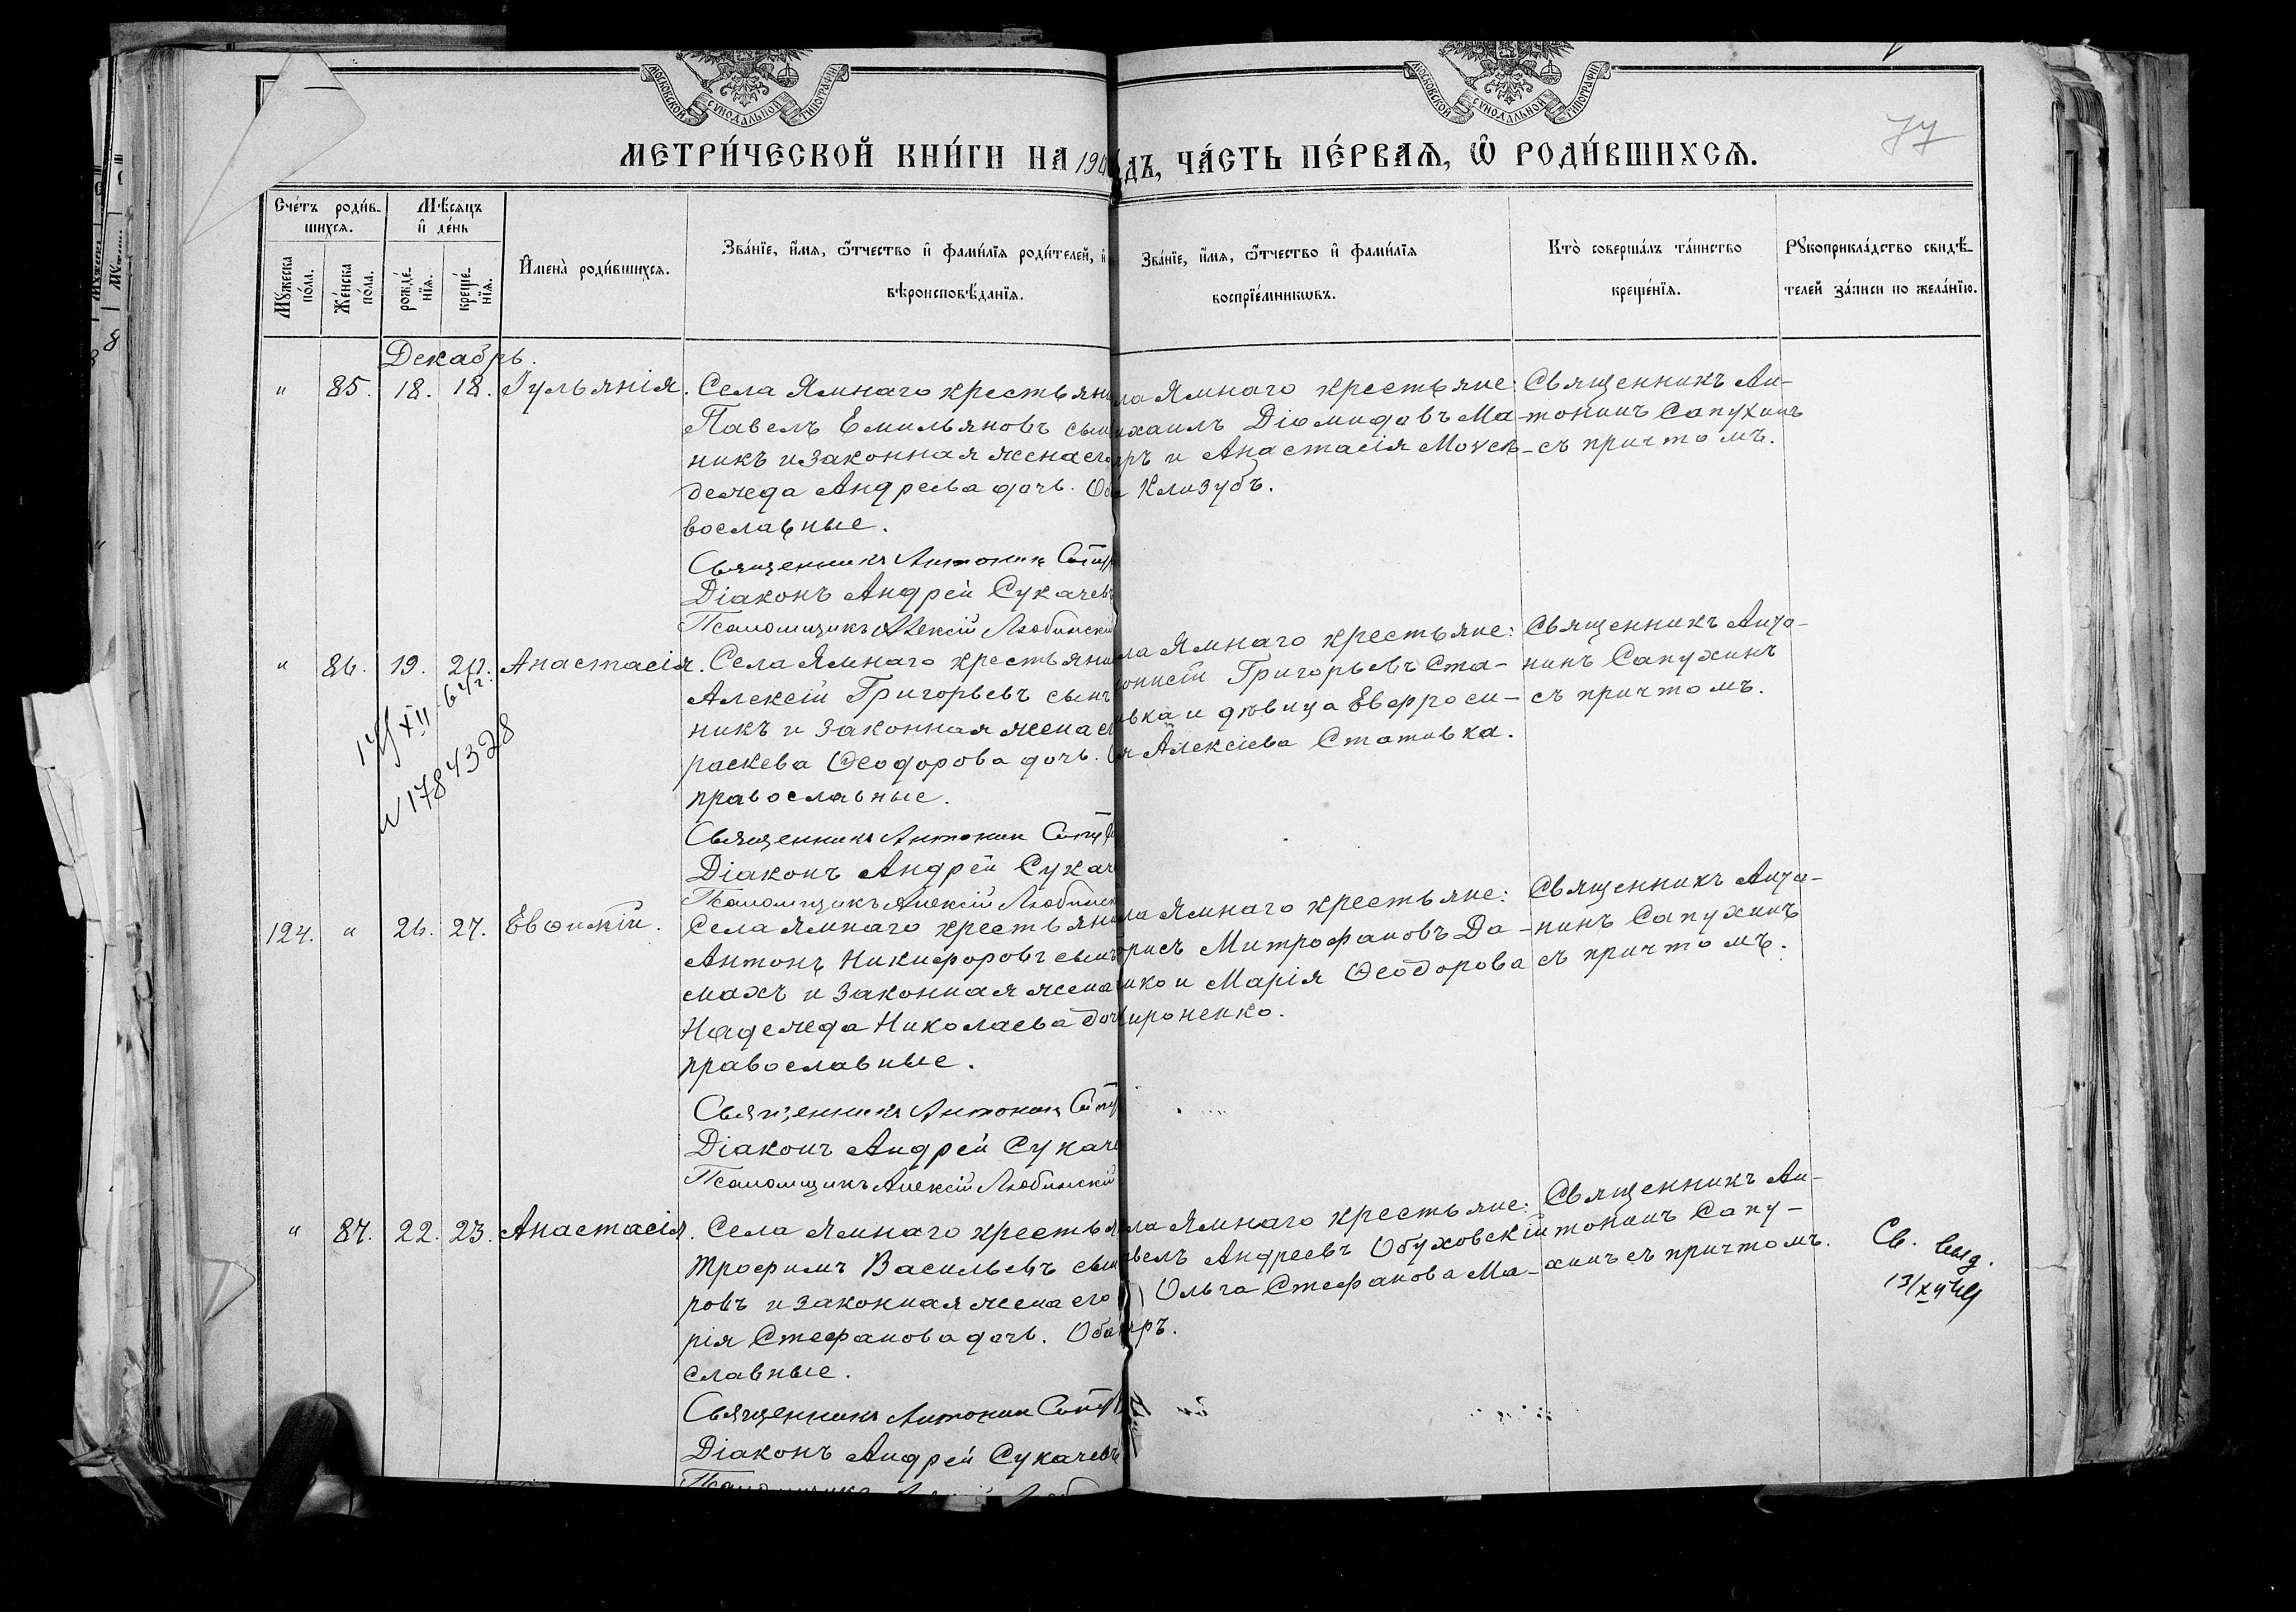 МОСКОВСКОЙ СѴНОДАЛЬНОЙ ТИПОГРАФІИ
МОСКОВСКОЙ СѴНОДАЛЬНОЙ ТИПОГРАФІИ
МЕТРИ́ЧЕСКОЙ КНИ́ГИ НА 190
ДЪ, ЧА́СТЬ ПЕ́РВАѦ, Ѿ РОДИ́ВШИХСѦ.
77
Сче́тъ роди́в-
шихсѧ.
Мѣ́сѧцъ
и҆ де́нь
Мꙋ́жеска
по́ла.
Же́нска
по́ла.
рожде́-
нїѧ.
креще́-
нїѧ.
И҆мена̀ роди́вшихсѧ.
Зва́нїе, и҆́мѧ, ѻ҆́тчество и҆ фами́лїѧ роди́телей, и҆
вѣроисповѣ́данїѧ.
Зва́нїе, и҆́мѧ, ѻ҆́тчество и҆ фами́лїѧ
воспрїе́мникѡвъ.
Кто̀ соверша́лъ та́инство
креще́нїѧ.
Рꙋкоприкла́дство свидѣ́-
телей за́писи по жела́нїю.
Декабрь.
" 85. 18. 18. Іульянія.
Села Ямнаго крестьяни
Павелъ Емильяновъ сын
никъ и законная жена его
дежда Андреева дочь. Об
вославные.
Священникъ Антонин
Діаконъ Андрей Сукачевъ
Псаломщикъ Алексій Любинскій
ла Ямнаго крестьяне:
ихаилъ Діомидовъ Ма-
ръ и Анастасія Моѵсе-
Клизубъ.
Священникъ Ан-
тонинъ Сапухинъ
съ причтомъ.
" 86. 19. 20. Анастасія.
Села Ямнаго крестьяни
Алексій Григорьевъ сынъ
никъ и законная жена е
раскева Ѳеодорова дочь.
православные.
Священникъ Антонин
Діаконъ Андрей Сукач
Псаломщикъ Алексій Любинск
ла Ямнаго крестьяне:
онисій Григорьевъ Ста-
вка и дѣвица Евфроси-
я Алексіева Стативка.
Священникъ Анто-
нинъ Сапухинъ
съ причтомъ.
N 1784328
124. " 26. 27. Евѳимій.
Села Ямнаго крестьяни
Антонъ Никифоровъ сынъ
махъ и законная жена
Надежда Николаева доч
православные.
Священникъ Антонин
Діаконъ Андрей Сукаче
Псаломщикъ Алексій Любинскій
ла Ямнаго крестьяне:
орисъ Митрофановъ Да-
ико и Марія Ѳеодорова
ироненко.
Священникъ Анто-
нинъ Сапухинъ
съ причтомъ.
" 87. 22. 23. Анастасія.
Села Ямнаго крестья
Трофимъ Васильевъ сын
ровъ и законная жена его
рія Стефанова дочь. Оба
славные.
Священникъ Антонин
Діаконъ Андрей Сукачевъ
ла Ямнаго крестьяне:
авелъ Андреевъ Обуховскій
Ольга Стефанова Ма-
ръ.
Священникъ Ан-
тонинъ Сапу-
хинъ съ причтомъ.
Св. выд.